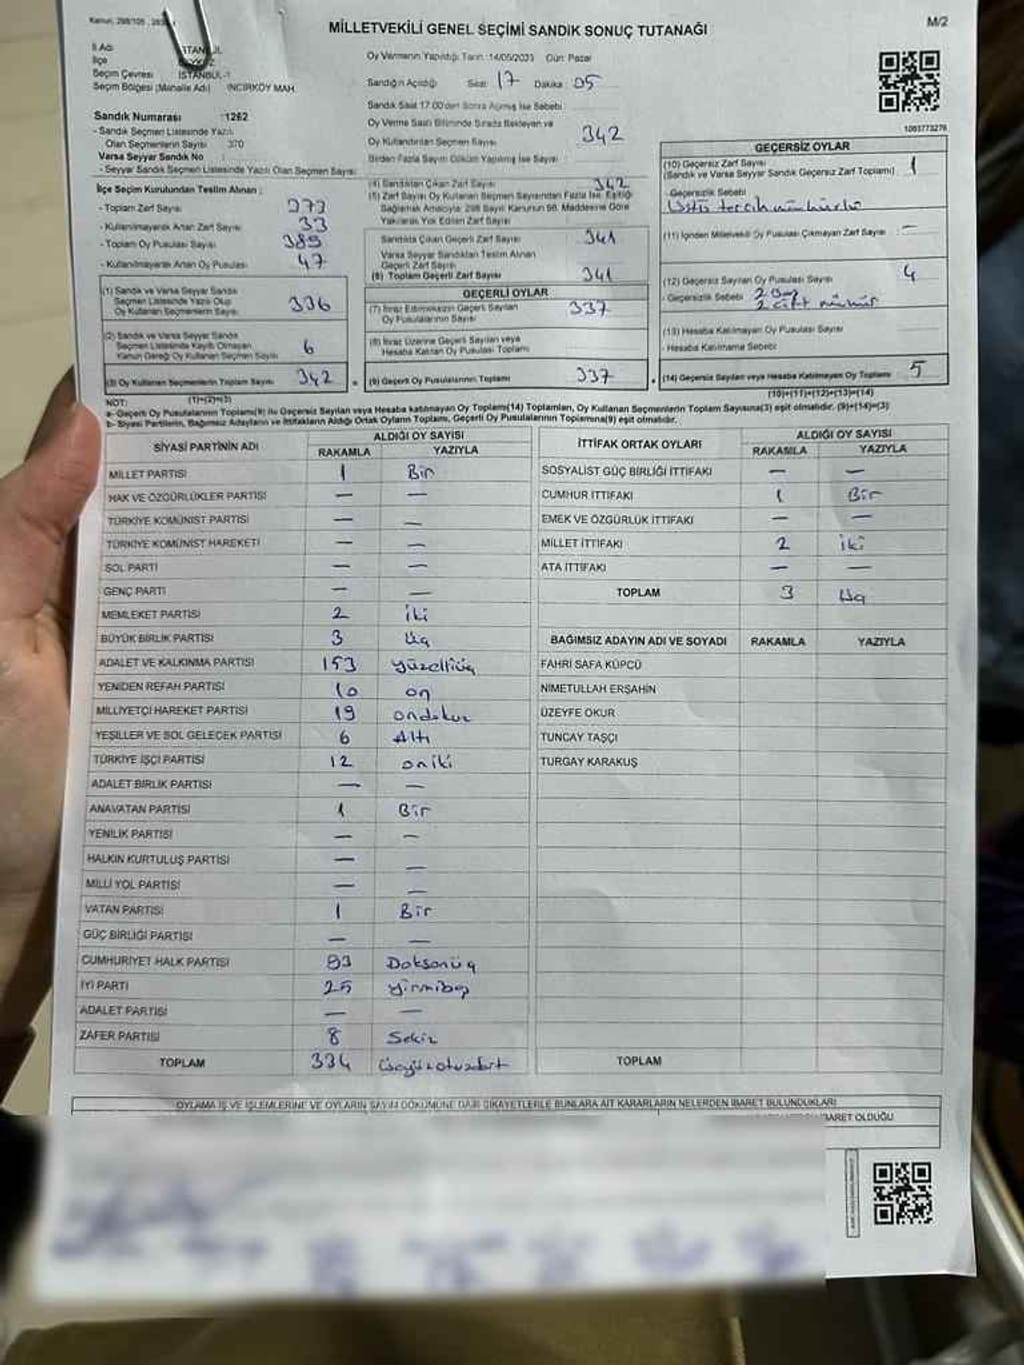 MİLLETVEKİLİ GENEL SEÇİMİ SANDIK SONUÇ TUTANAĞI
M/2
İl Adı İSTANBUL
İlçe
Seçim Çevresi İSTANBUL-1
Seçim Bölgesi (Mahalle Adı) İNCİRKÖY MAH.
Oy Vermenin Yapıldığı Tarih :14/05/2023 Gün: Pazar
Sandığın Açıldığı Saat 17 Dakika 05
Sandık Saat 17.00'den Sonra Açılmış İse Sebebi :
Oy Verme Saati Bitiminde Sırada Bekleyen ve
Oy Kullandırılan Seçmen Sayısı : 342
Birden Fazla Sayım Döküm Yapılmış İse Sayısı :
1003773276
Sandık Numarası 1262
- Sandık Seçmen Listesinde Yazılı
Olan Seçmenlerin Sayısı 370
Varsa Seyyar Sandık No :
- Seyyar Sandık Seçmen Listesinde Yazılı Olan Seçmen Sayısı
İlçe Seçim Kurulundan Teslim Alınan :
- Toplam Zarf Sayısı
- Kullanılmayarak Artan Zarf Sayısı 33
- Toplam Oy Pusulası Sayısı 389
- Kullanılmayarak Artan Oy Pusulası 47
(1) Sandık ve Varsa Seyyar Sandık
Seçmen Listesinde Yazılı Olup
Oy Kullanan Seçmenlerin Sayısı 336
(2) Sandık ve Varsa Seyyar Sandık
Seçmen Listesinde Kayıtlı Olmayan
Kanun Gereği Oy Kullanan Seçmen Sayısı 6
(3) Oy Kullanan Seçmenlerin Toplam Sayısı 342
(1)+(2)=(3)
(4) Sandıktan Çıkan Zarf Sayısı 342
(5) Zarf Sayısı Oy Kullanan Seçmen Sayısından Fazla İse, Eşitliği
Sağlamak Amacıyla; 298 Sayılı Kanunun 98. Maddesine Göre
Yakılarak Yok Edilen Zarf Sayısı
Sandıkta Çıkan Geçerli Zarf Sayısı 341
Varsa Seyyar Sandıktan Teslim Alınan
Geçerli Zarf Sayısı
(6) Toplam Geçerli Zarf Sayısı 341
GEÇERLİ OYLAR
(7) İtiraz Edilmeksizin Geçerli Sayılan
Oy Pusulalarının Sayısı 337
(8) İtiraz Üzerine Geçerli Sayılan veya
Hesaba Katılan Oy Pusulası Toplamı
(9) Geçerli Oy Pusulalarının Toplamı 337
GEÇERSİZ OYLAR
(10) Geçersiz Zarf Sayısı 1
(Sandık ve Varsa Seyyar Sandık Geçersiz Zarf Toplamı)
- Geçersizlik Sebebi
(11) İçinden Milletvekili Oy Pusulası Çıkmayan Zarf Sayısı : —
(12) Geçersiz Sayılan Oy Pusulası Sayısı 4
- Geçersizlik Sebebi 2 Boş
2 çift mühür
(13) Hesaba Katılmayan Oy Pusulası Sayısı
- Hesaba Katılmama Sebebi
(14) Geçersiz Sayılan veya Hesaba Katılmayan Oy Toplamı 5
(10)+(11)+(12)+(13)=(14)
NOT:
a- Geçerli Oy Pusulalarının Toplamı(9) ile Geçersiz Sayılan veya Hesaba katılmayan Oy Toplamı(14) Toplamları, Oy Kullanan Seçmenlerin Toplam Sayısına(3) eşit olmalıdır. (9)+(14)=(3)
b- Siyasi Partilerin, Bağımsız Adayların ve İttifakların Aldığı Ortak Oyların Toplamı, Geçerli Oy Pusulalarının Toplamına(9) eşit olmalıdır.
SİYASİ PARTİNİN ADI ALDIĞI OY SAYISI
RAKAMLA YAZIYLA
MİLLET PARTİSİ 1 Bir
HAK VE ÖZGÜRLÜKLER PARTİSİ — —
TÜRKİYE KOMÜNİST PARTİSİ — —
TÜRKİYE KOMÜNİST HAREKETİ — —
SOL PARTİ — —
GENÇ PARTİ — —
MEMLEKET PARTİSİ 2 iki
BÜYÜK BİRLİK PARTİSİ 3 Üç
ADALET VE KALKINMA PARTİSİ 153 Yüzelliüç
YENİDEN REFAH PARTİSİ 10 on
MİLLİYETÇİ HAREKET PARTİSİ 19 ondokuz
YEŞİLLER VE SOL GELECEK PARTİSİ 6 Altı
TÜRKİYE İŞÇİ PARTİSİ 12 oniki
ADALET BİRLİK PARTİSİ — —
ANAVATAN PARTİSİ 1 Bir
YENİLİK PARTİSİ — —
HALKIN KURTULUŞ PARTİSİ — —
MİLLİ YOL PARTİSİ — —
VATAN PARTİSİ 1 Bir
GÜÇ BİRLİĞİ PARTİSİ — —
CUMHURİYET HALK PARTİSİ 93 Doksanüç
İYİ PARTİ 25 yirmibeş
ADALET PARTİSİ — —
ZAFER PARTİSİ 8 Sekiz
TOPLAM 334 üçyüzotuzdört
İTTİFAK ORTAK OYLARI ALDIĞI OY SAYISI
RAKAMLA YAZIYLA
SOSYALİST GÜÇ BİRLİĞİ İTTİFAKI — —
CUMHUR İTTİFAKI 1 Bir
EMEK VE ÖZGÜRLÜK İTTİFAKI — —
MİLLET İTTİFAKI 2 iki
ATA İTTİFAKI — —
TOPLAM 3 Üç
BAĞIMSIZ ADAYIN ADI VE SOYADI RAKAMLA YAZIYLA
FAHRİ SAFA KÜPCÜ
NİMETULLAH ERŞAHİN
ÜZEYFE OKUR
TUNCAY TAŞÇI
TURGAY KARAKUŞ
TOPLAM
OYLAMA İŞ VE İŞLEMLERİNE VE OYLARIN SAYIM DÖKÜMÜNE DAİR ŞİKAYETLERLE BUNLARA AİT KARARLARIN NELERDEN İBARET BULUNDUKLARI
İBARET OLDUĞU